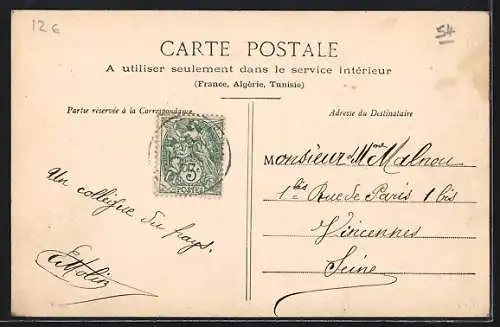 12 €
54
CARTE POSTALE
A utiliser seulement dans le service intérieur
(France, Algérie, Tunisie)
Partie réservée à la Correspondance
Adresse du Destinataire
3c
POSTES
Un collègue du pays.
Monsieur et Mme Malnou
1 bis Rue de Paris 1 bis
Vincennes
Seine